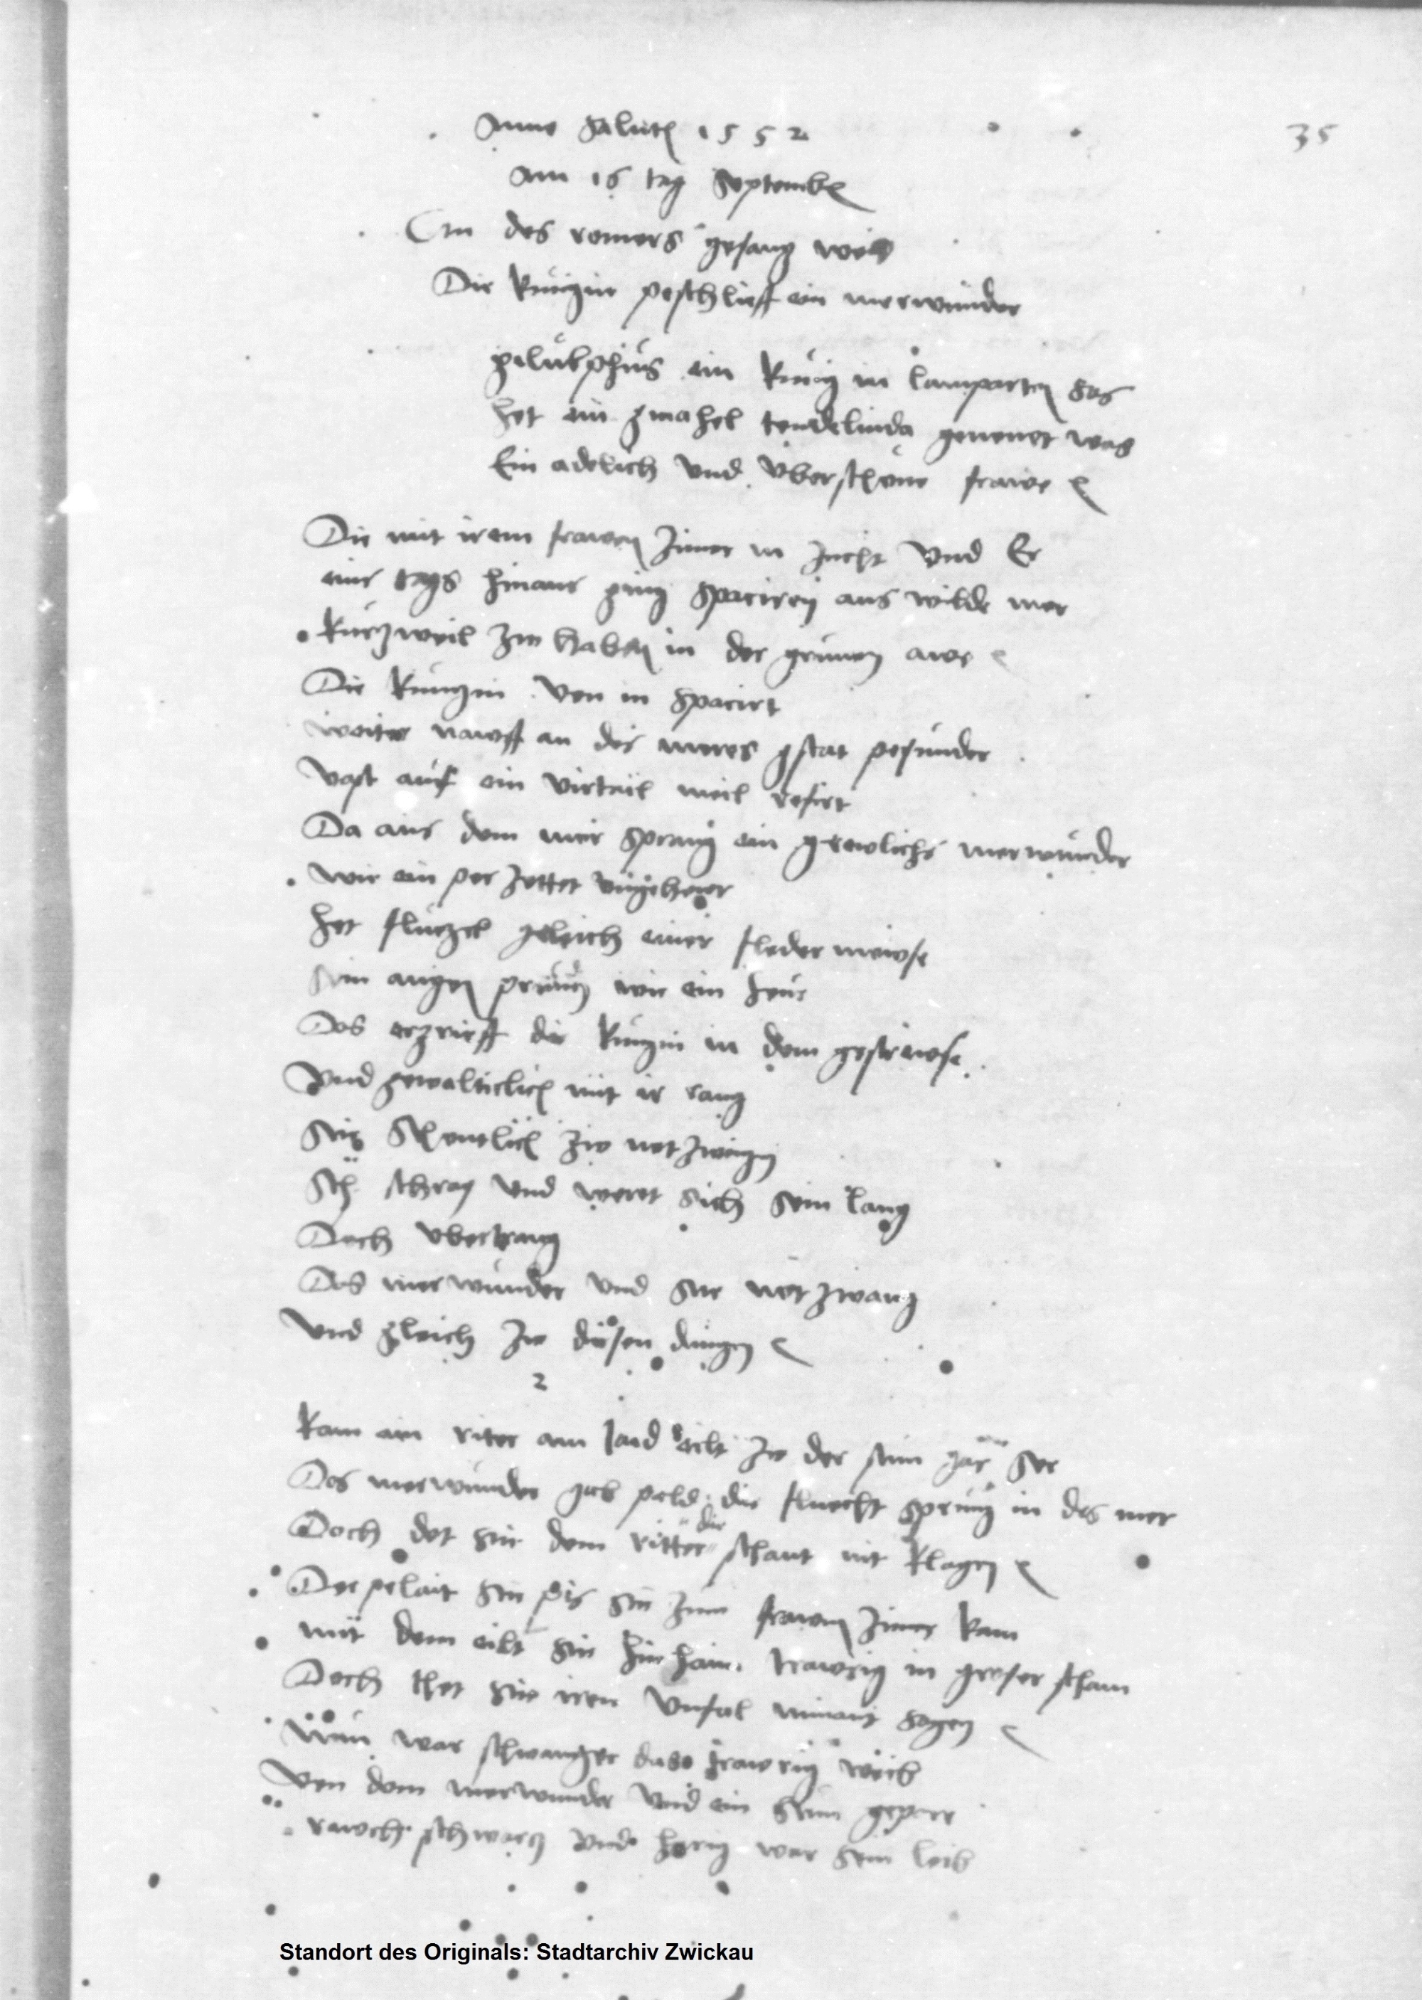 Anno salutis 1552
35
am 16 tag September
In des romers gesang weis
Die künigin peschlieff ein merwunder
gilulphus ein künig in lamparten sas
het ein gmahel tendelinda genenet was
Ein adelich und uberschöne frawe
Die mit irem frawen zimer in zucht und Er
eins tags hinaus ging spaciren ans wilde mer
kurzweil zw haben in der grünen awe
Die künigin von in spacirt
weiter nawff an des meres gstat pesunder
vast auf ein virtail meil refirt
Da aus dem mer sprang ein grewlichs merwunder
wie ein per zottet ungehewer
het flüegel geleich einer fledermewse
sein augen prunen wie ein fewr
Das ergrieff die künigin in dem gestrewse
Und gewalticlich mit ir rang
Sie schentlich zw notzwingen
sie schray und weret sich sein lang
Doch uberrang
Das merwunder und sie notzwang
und gleich zw diesen dingen
2
kam ein riter am jaid eilt zw der stim gar ser
Das merwunder gab pald die fluecht sprung in das mer
Doch det sie dem ritter die schant nit klagen
Der pelait sie pis sie zum frawen zimer kam
mit dem eilt sie hin haim trawrig in groser scham
Doch thet sie iren unfal nimant sagen
Nun war schwanger das trawrig weib
Von dem merwunder und ein sun gepare
rawch schwarz und harig war sein leib
Standort des Originals: Stadtarchiv Zwickau